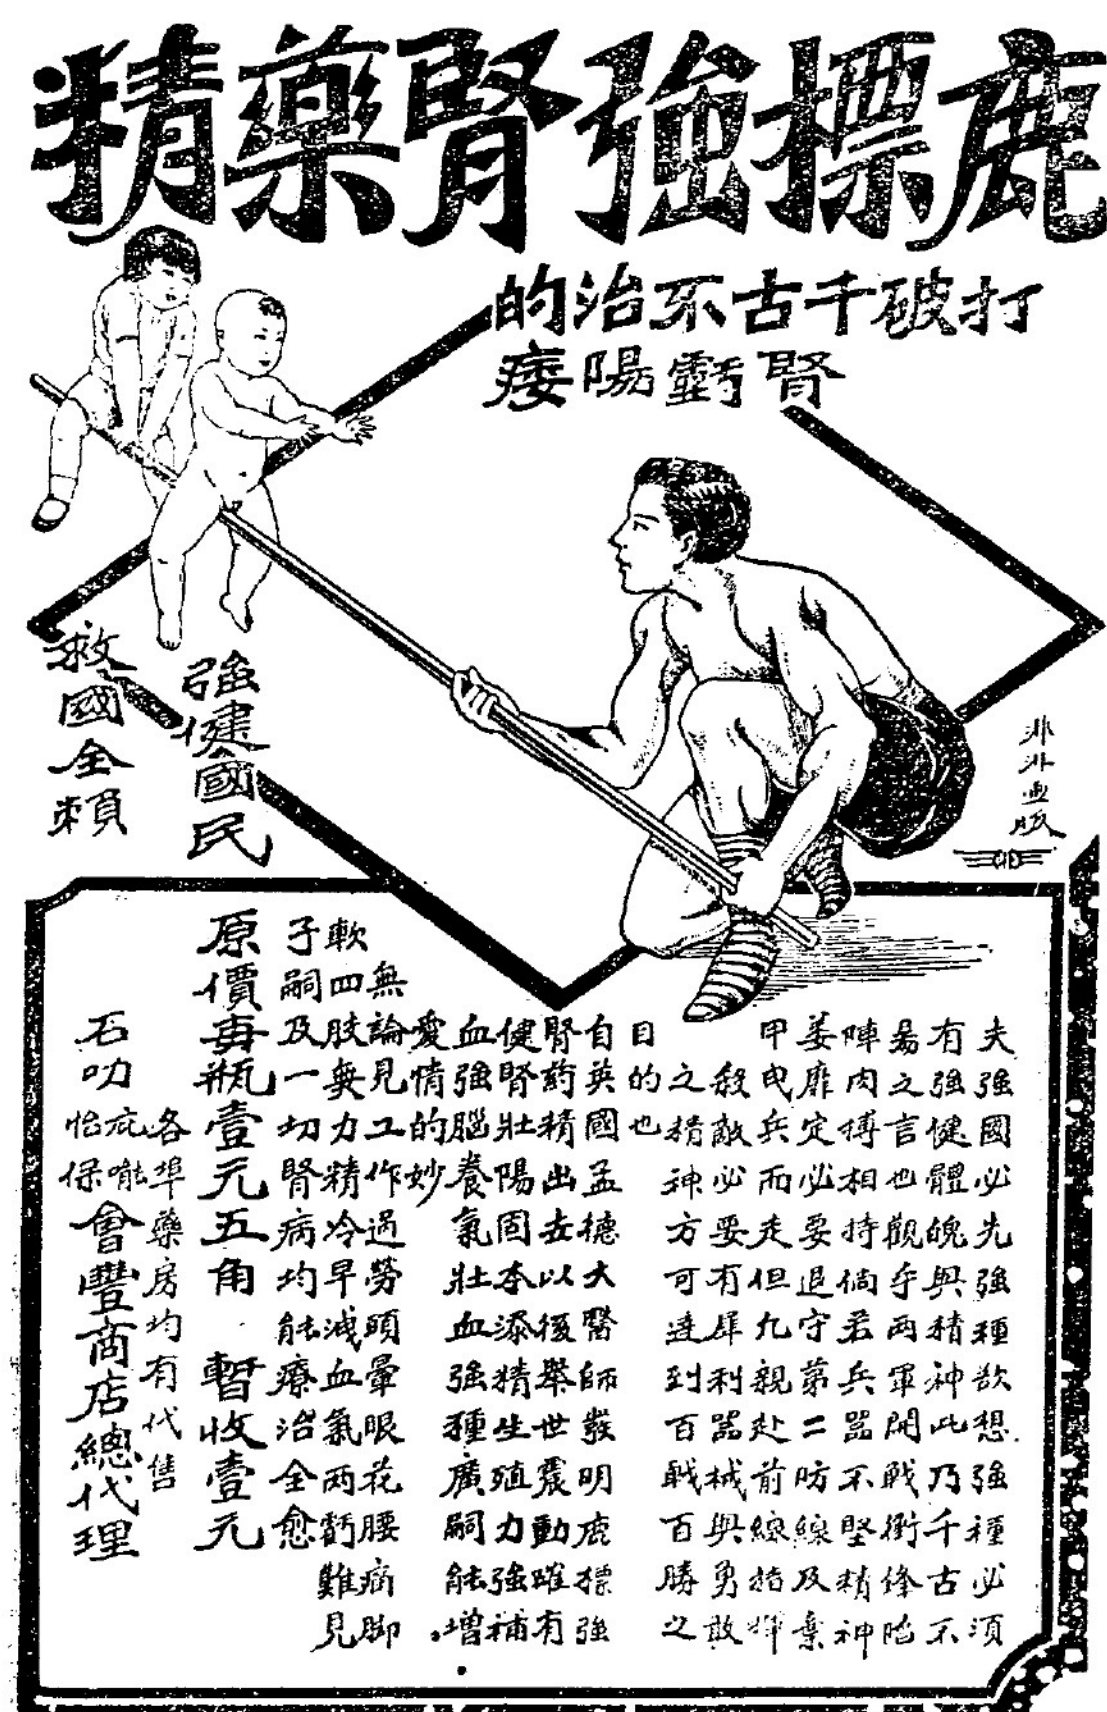 鹿標強腎藥精
打破千古不治的
腎虧陽痿
強健國民
救國全賴
非非画版
夫強國必先強種欲想強種必須
有強健體魄與精神此乃千古不
易之言也觀乎兩軍開戰衝鋒陷
陣肉搏相持倘若兵器不堅精神
萎靡定必要退守第二防線及棄
甲曳兵而走但凡親赴前線指揮
殺敵必要有犀利器械與勇敢
之精神方可達到百戰百勝之
目的也
自英國孟德大醫師發明鹿標強
腎药精出去以後舉世震動確有
健腎壯陽固本添精生殖力強補
血強腦養氣壯血強種廣嗣能增
愛情的妙
無論見工作過勞頭暈眼花腰痛脚
軟四肢無力精冷早洩血氣两虧難見
子嗣及一切腎病均能療治全愈
原價每瓶壹元五角 暫收壹元
各埠藥房均有代售
石叻 庇嚨 怡保 會豐商店總代理